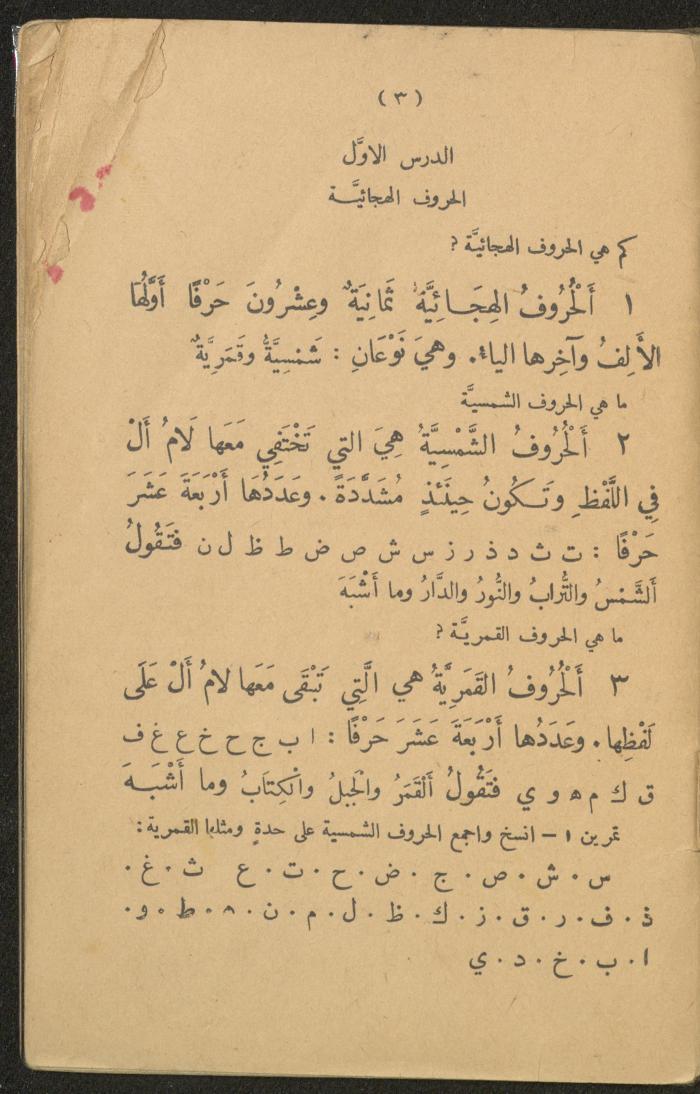 (٣)
الدرس الاوَّل
الحروف الهجائيَّة
كم هي الحروف الهجائيَّة ؟
١ أَلْحُرُوفُ الهِجَائِيَّةُ ثَمَانِيَةٌ وعِشْرُونَ حَرْفًا أَوَّلُهَا
الأَلِفُ وآخِرها الياء. وهيَ نَوْعَانِ : شَمْسِيَّةٌ وقَمَرِيَّةٌ
ما هي الحروف الشمسيَّة
٢ أَلْحُرُوفُ الشَّمْسِيَّةُ هِيَ التي تَخْتَفِي مَعَها لَامُ أَلْ
فِي اللَّفْظِ وتَكُونُ حِينَئذٍ مُشَدَّدَةً. وعَدَدُهَا أَرْبَعَةَ عَشَرَ
حَرْفًا : ت ث د ذ ر ز س ش ص ض ط ظ ل ن فتَقُولُ
أَلشَّمْسُ والتُّرابُ والنُّورُ والدَّارُ وما أَشْبَهَ
ما هي الحروف القمريَّة ؟
٣ أَلْحُرُوفُ القَمَرِيَّةُ هي الَّتِي تَبْقَى مَعَها لامُ أَلْ عَلَى
لَفْظِها. وعَدَدُها أَرْبَعَةَ عَشَرَ حَرْفًا : ا ب ج ح خ ع غ ف
ق ك م ه و ي فتَقُولُ أَلْقَمَرُ والْجبلُ والْكِتَابُ وما أَشْبَهَ
تمرين ١ – انسخ واجمع الحروف الشمسية على حدةٍ ومثلها القمرية :
س . ش . ص . ج . ض . ح . ت . ع ث . غ .
ذ . ف . ر . ق . ز . ك . ظ . ل . م . ن . ه . ط . و .
ا . ب . خ . د . ي